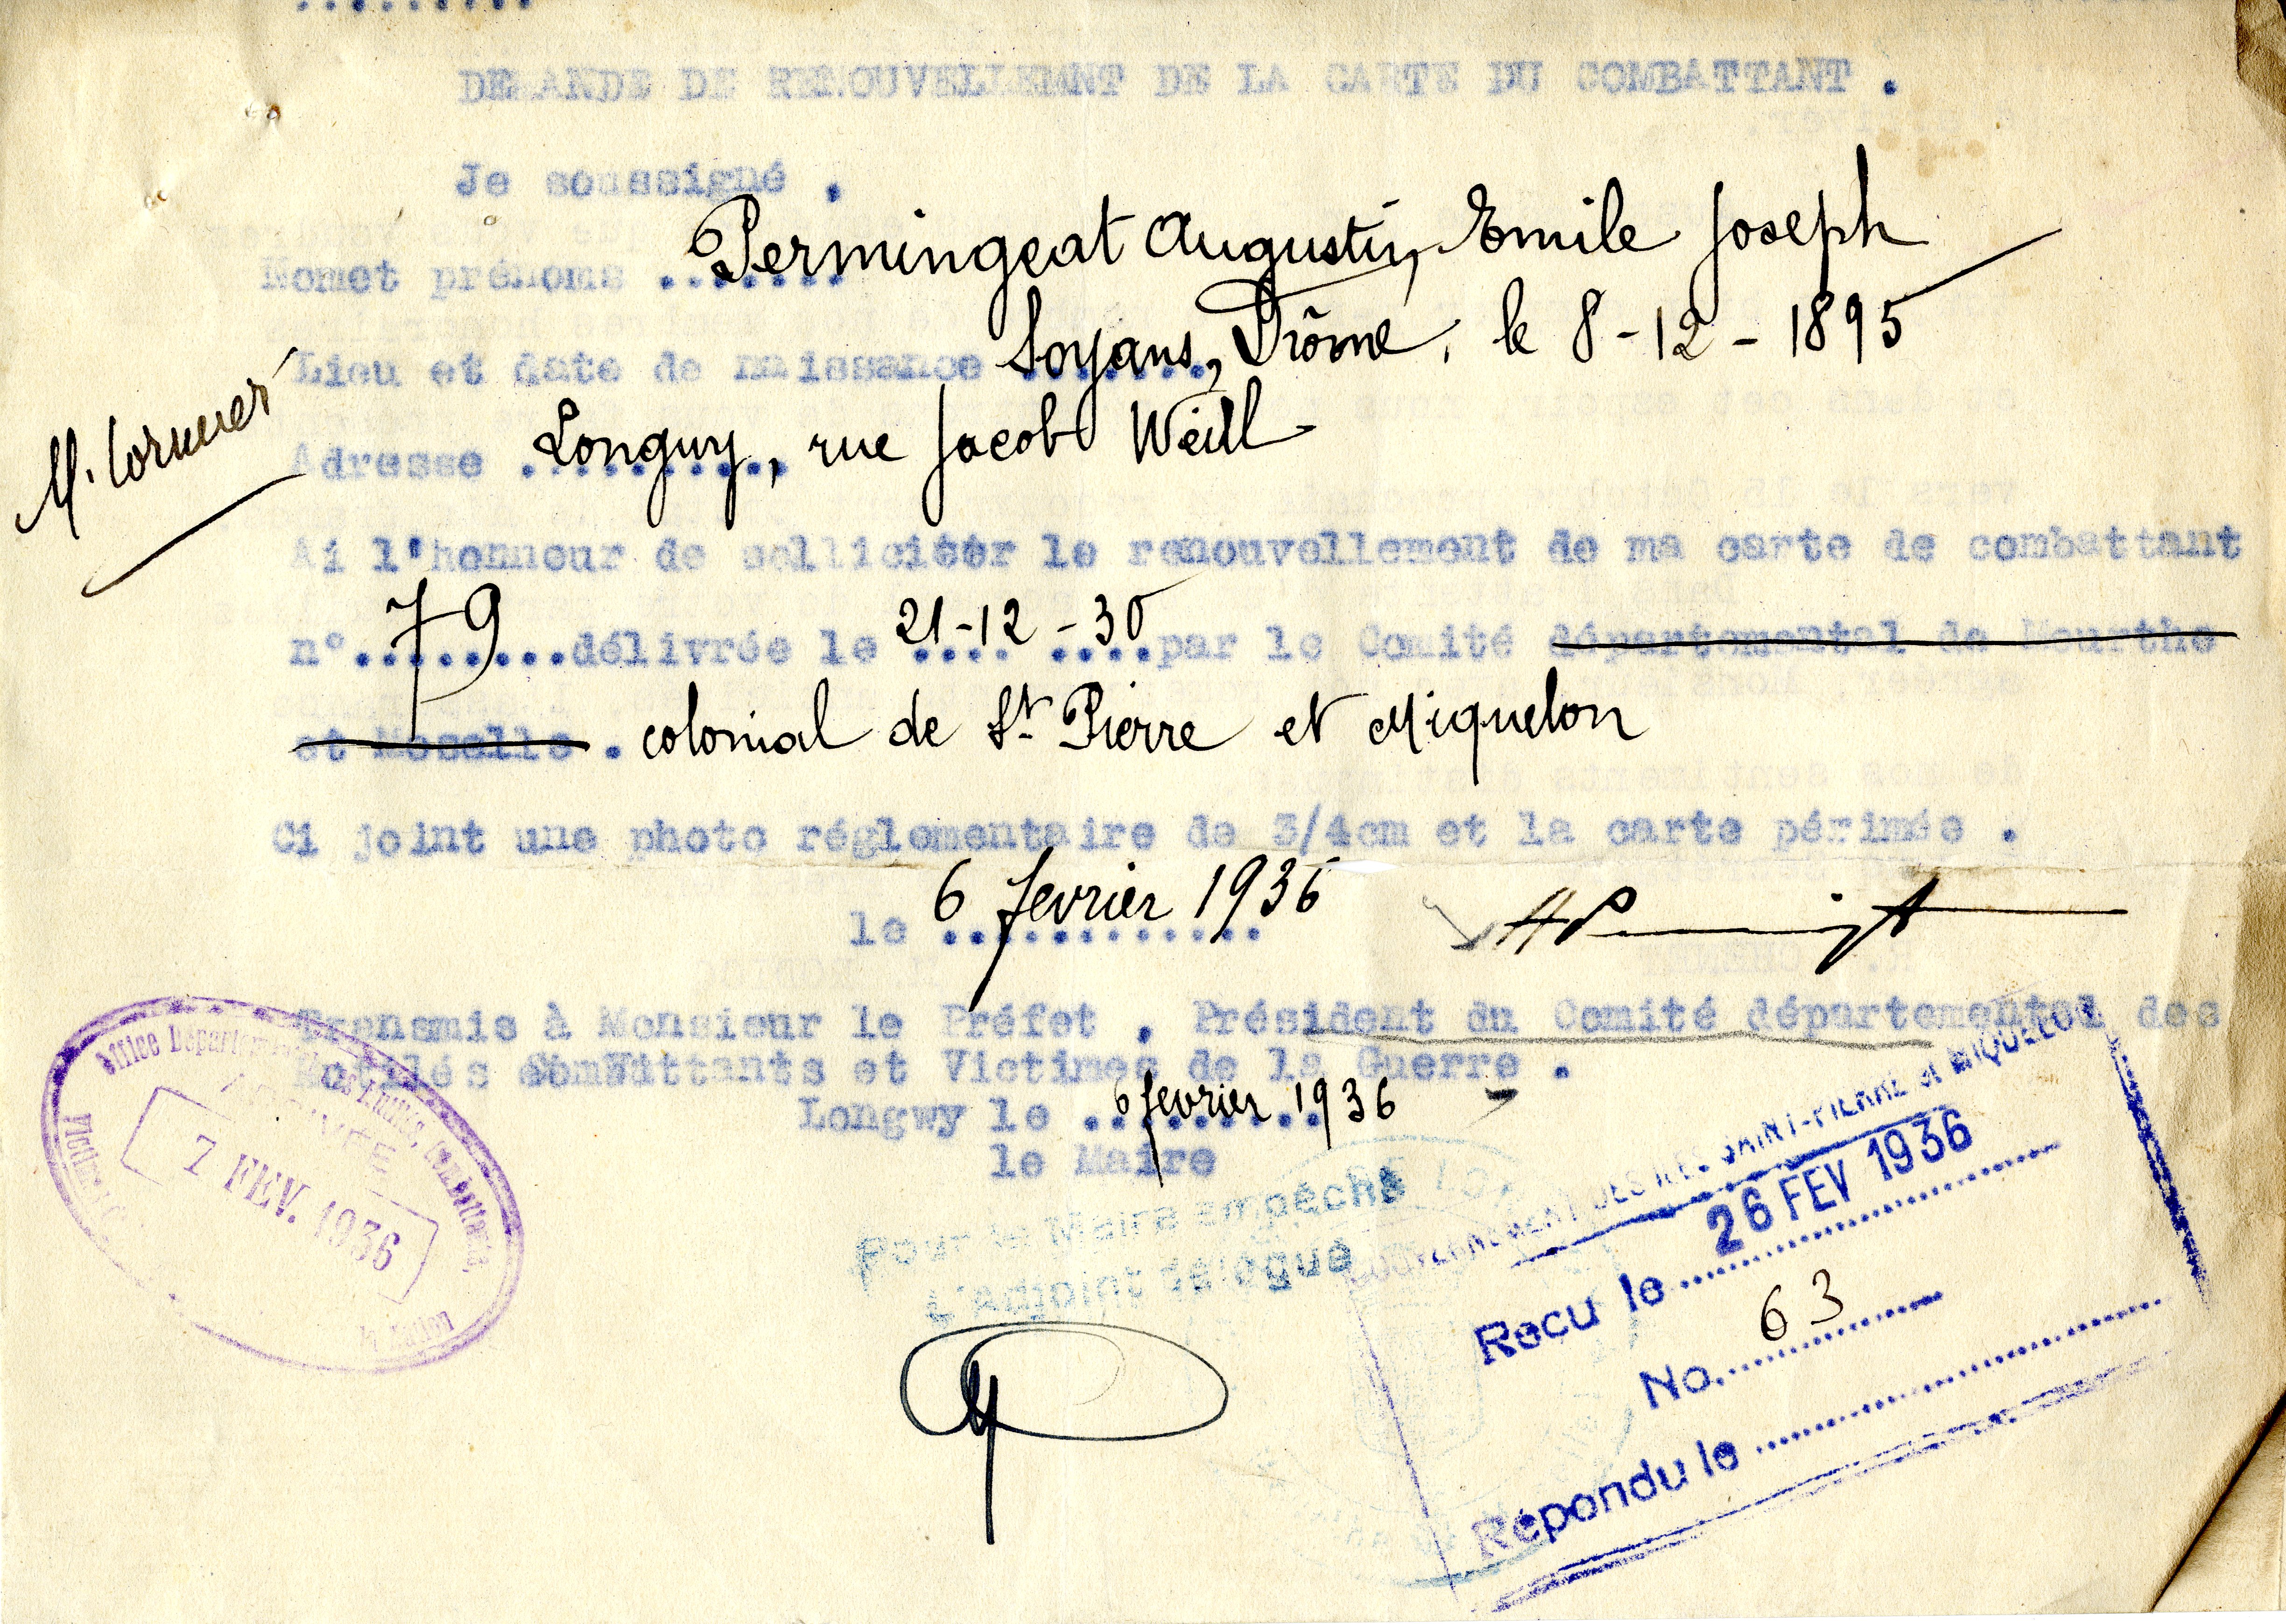 DEMANDE DE RENOUVELLEMENT DE LA CARTE DU COMBATTANT .
Je soussigné .
Nomet prénoms ....... Permingeat Augustin, Emile Joseph
Lieu et date de naissance ....... Soyans, Drôme, le 8-12-1895
M. Cormier
Adresse .......... Longwy, rue Jacob Weill
Ai l'honneur de solliciter le renouvellement de ma carte de combattant
n° 79 délivrée le 21-12-30 par le Comité départemental de Meurthe
et Moselle . colonial de St Pierre et Miquelon
Ci joint une photo réglementaire de 3/4cm et la carte périmée .
le 6 fevrier 1936
Transmis à Monsieur le Préfet . Président du Comité départemental des
Mutilés Combattants et Victimes de la Guerre .
Longwy le 6 fevrier 1936
le Maire
Pour le Maire empêché
L'adjoint délégué
Office Départemental des Mutilés, Combattants,
ARRIVÉE
7 FEV. 1936
GOUVERNEMENT DES ILES SAINT-PIERRE et MIQUELON
Recu le 26 FEV 1936
No. 63
Répondu le